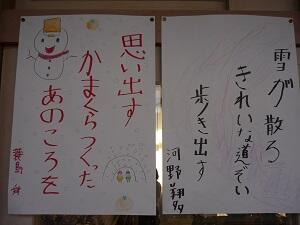 雪が散る
きれいな道ぞい
歩き出す
河野翔多
思い出す
かまくらつくった
あのころを